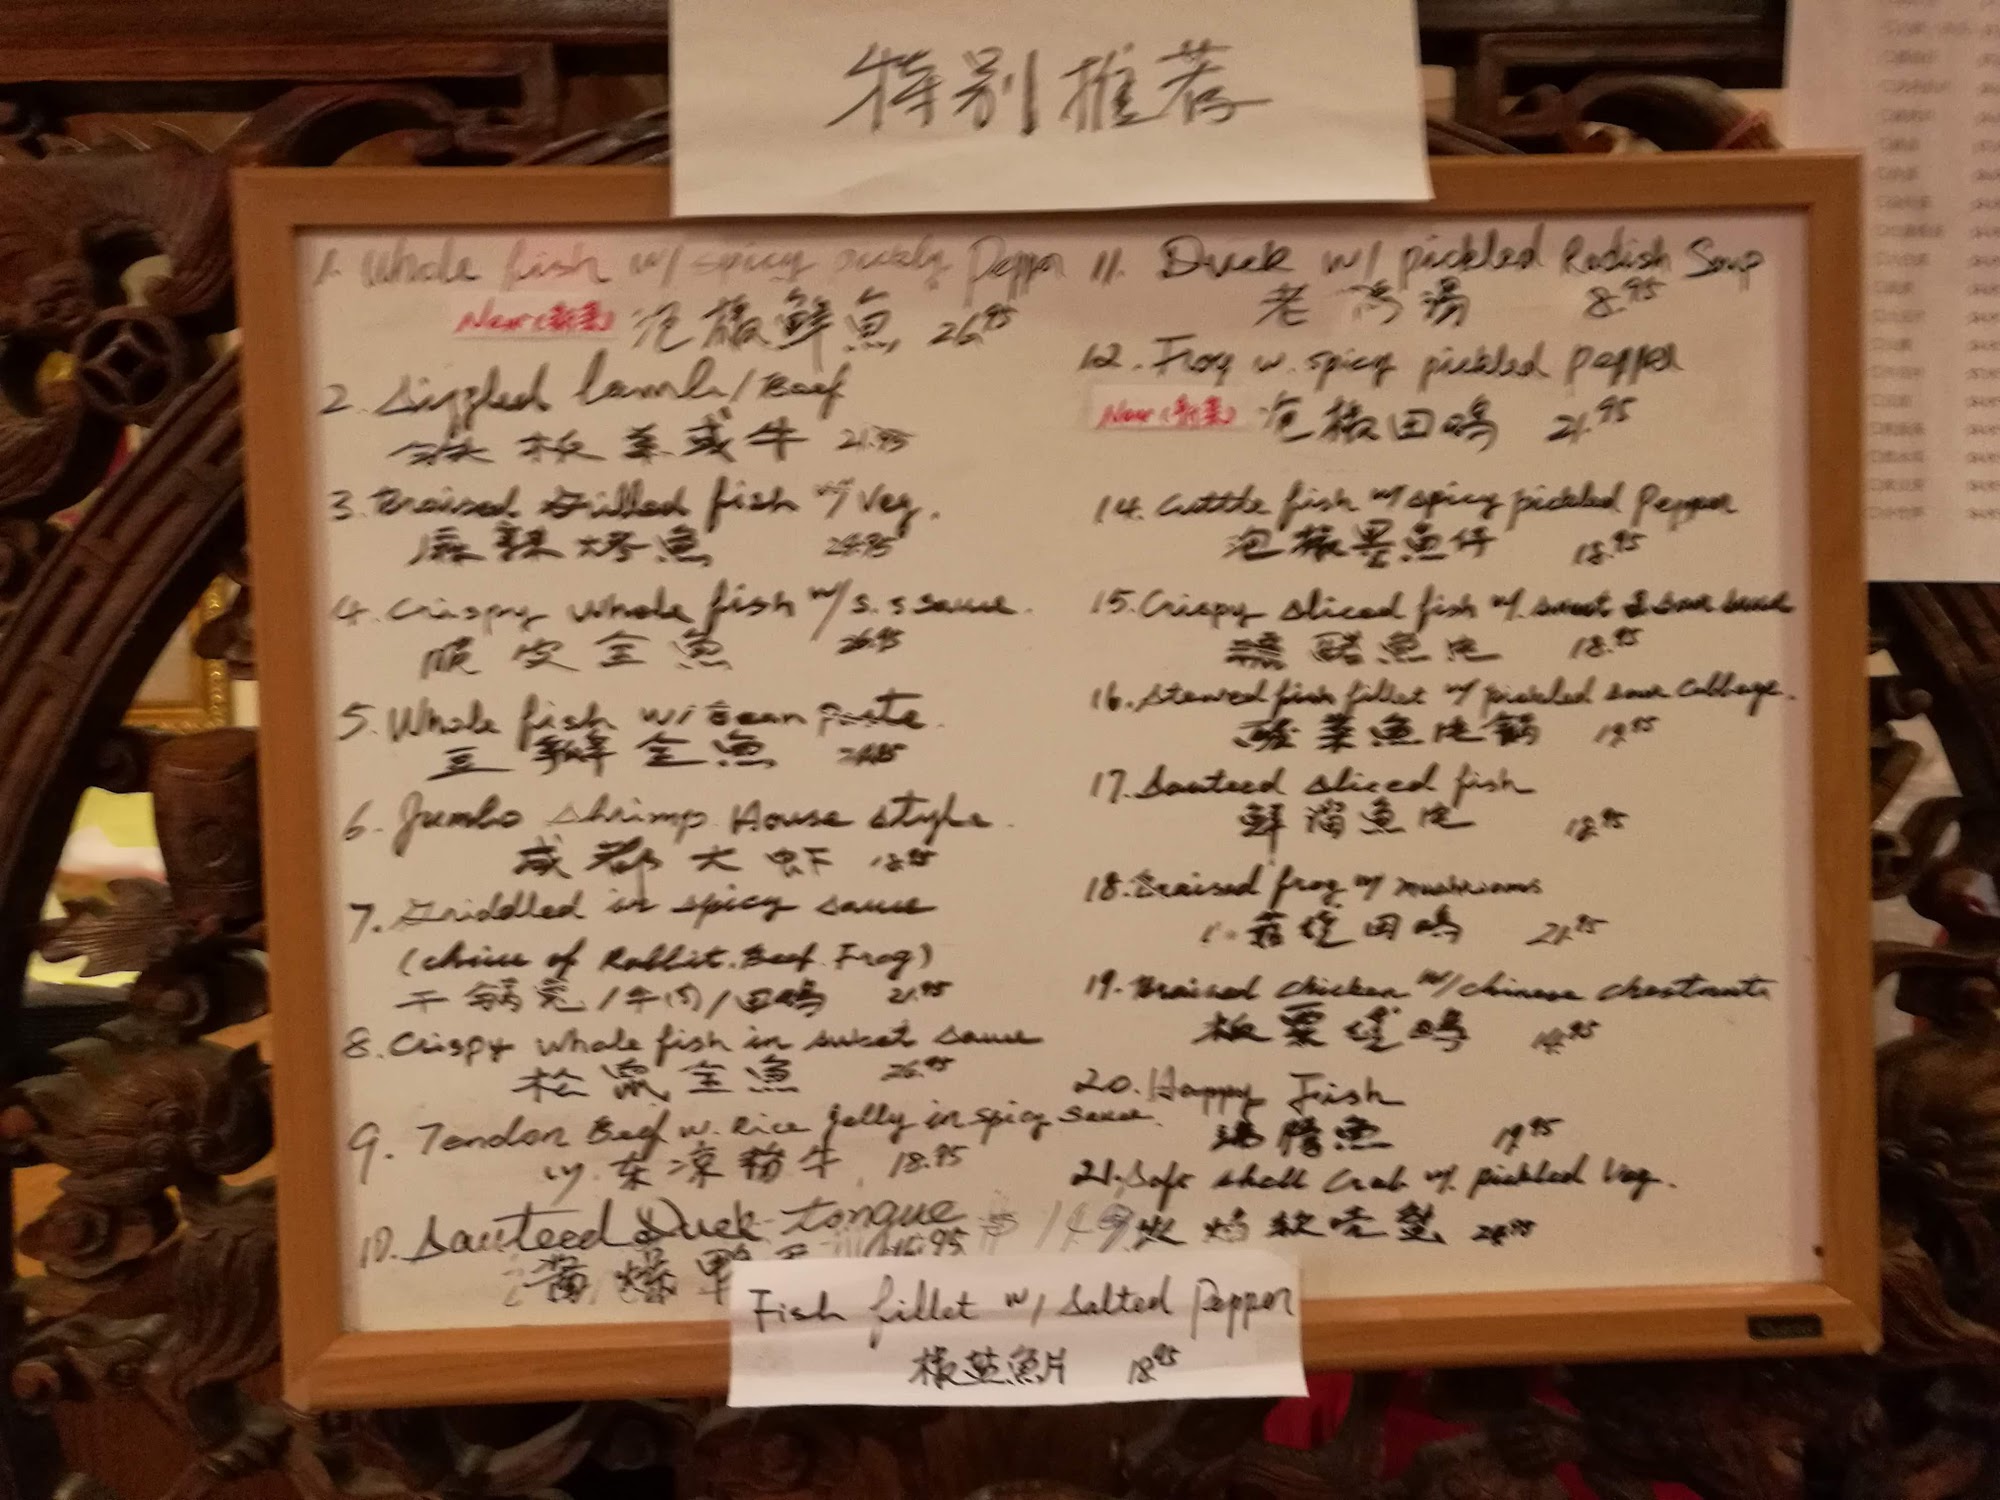 特别推荐
1. Whole fish w/ spicy pickly Pepper
New (新菜) 泡椒鮮魚 26.95
2. Sizzled lamb / Beef
铁板羊或牛 21.95
3. Braised Grilled fish w/ Veg.
麻辣烤魚 24.95
4. Crispy whole fish w/ s.s sauce.
脆皮全魚 26.95
5. Whole fish w/ Bean paste.
豆瓣全魚
6. Jumbo shrimp House style.
成都大虾 18.95
7. Griddled in spicy sauce
(choice of Rabbit. Beef. Frog)
干锅兔/牛肉/田鸡 21.95
8. Crispy whole fish in sweet sauce
松鼠全魚 26.95
9. Tendon Beef w. Rice Jelly in spicy sauce.
川东凉粉牛 18.95
10. Sauteed Duck tongue
酱爆鸭 16.95
11. Duck w/ pickled Radish Soup
老鸭湯 8.95
12. Frog w. spicy pickled pepper
New (新菜) 泡椒田鸡 21.95
14. Cuttle fish w/ spicy pickled Pepper
泡椒墨魚仔 18.95
15. Crispy sliced fish w. sweet & sour sauce
糖醋魚片 18.95
16. Stewed fish fillet w/ pickled sour Cabbage.
酸菜魚片锅 19.95
17. Sauteed sliced fish
鲜溜魚片 18.95
18. Braised frog w/ mushrooms
菇烧田鸡 21.95
19. Braised chicken w/ chinese chestnuts
板栗烧鸡 14.95
20. Happy Fish
沸腾魚 19.95
21. Soft shell Crab w. pickled Veg.
软壳蟹 24.95
Fish fillet w/ Salted Pepper
椒盐魚片 18.95